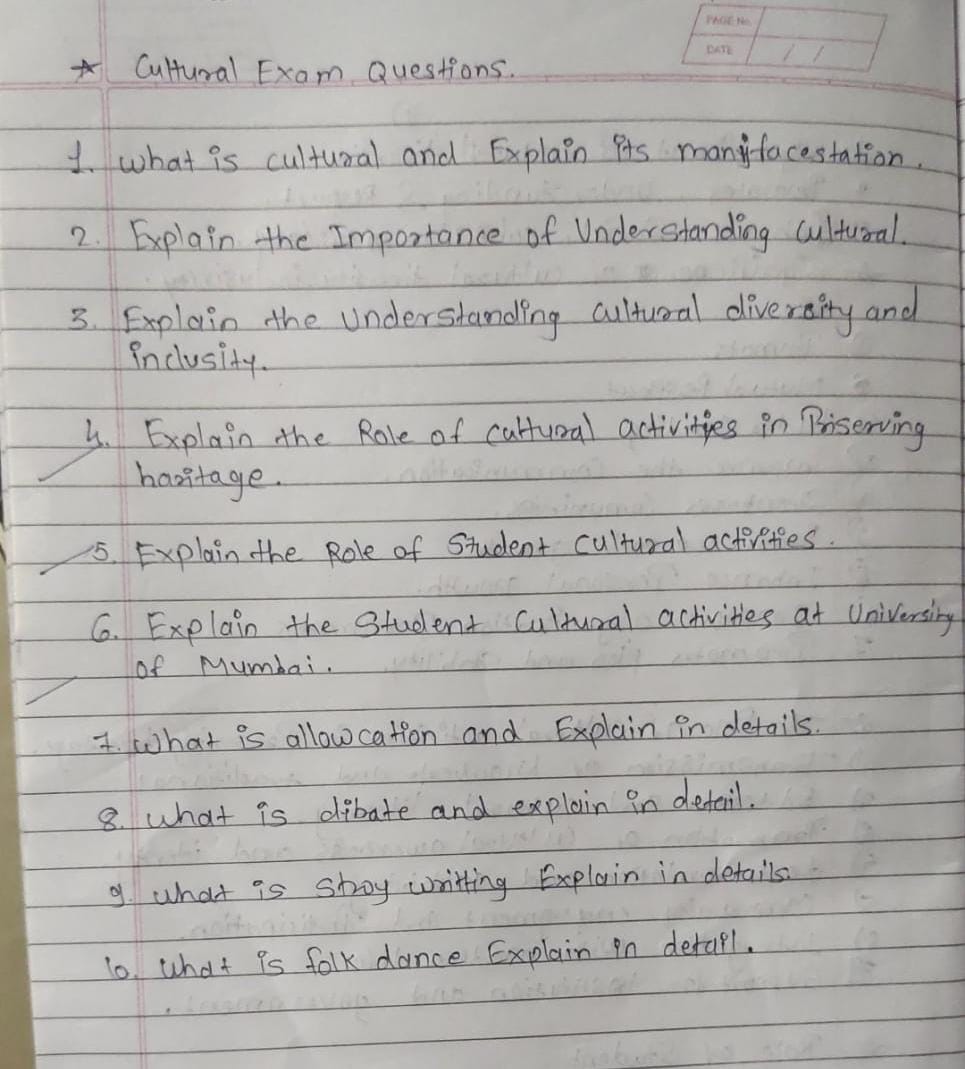 PAGE No.
DATE / /
☆ Cultural Exam Questions.
1. What is cultural and Explain its manifacestation.
2. Explain the Importance of Understanding cultural.
3. Explain the Understanding cultural diversity and
inclusity.
4. Explain the Role of cultural activities in Priserving
haritage.
5. Explain the Role of Student cultural activities.
6. Explain the Student Cultural activities at University
of Mumbai.
7. What is allowcation and Explain in details.
8. what is dibate and explain in detail.
9. what is stroy writting Explain in details.
10. what is folk dance Explain in detail.